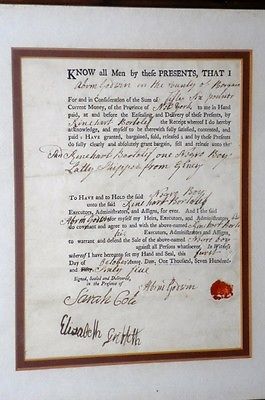 KNOW all Men by these PRESENTS, THAT I
Abm Godwin in the county of Bergen
For and in Consideration of the Sum of fifty six pounds
Current Money, of the Province of New York to me in Hand
paid, at and before the Ensealing, and Delivery of these Presents, by
Rinehart the Receipt whereof I do hereby
acknowledge, and myself to be therewith fully satisfied, contented, and
paid: Have granted, bargained, sold, released; and by these Presents
do fully, clearly and absolutely grant bargain, sell and release unto the
said Rinehart one Negro Boy
Lately Shipped from
To HAVE and to HOLD the said Negro Boy
unto the said Rinehart
Executors, Administrators, and Assigns, for ever. And I the said
Abm Godwin for myself my Heirs, Executors, and Administrators do
covenant and agree to and with the above-named Rinehart
his Executors, Administrators and Assigns,
to warrant and defend the Sale of the above-named Negro Boy
against all Persons whatsoever. In Witness
whereof I have hereunto set my Hand and Seal, this first
Day of October Anno. Dom. One Thousand, Seven Hundred
and Sixty five
Signed, Sealed and Delivered,
in the Presence of
Abm Godwin
Sarah Cole
Elisabeth Griffith